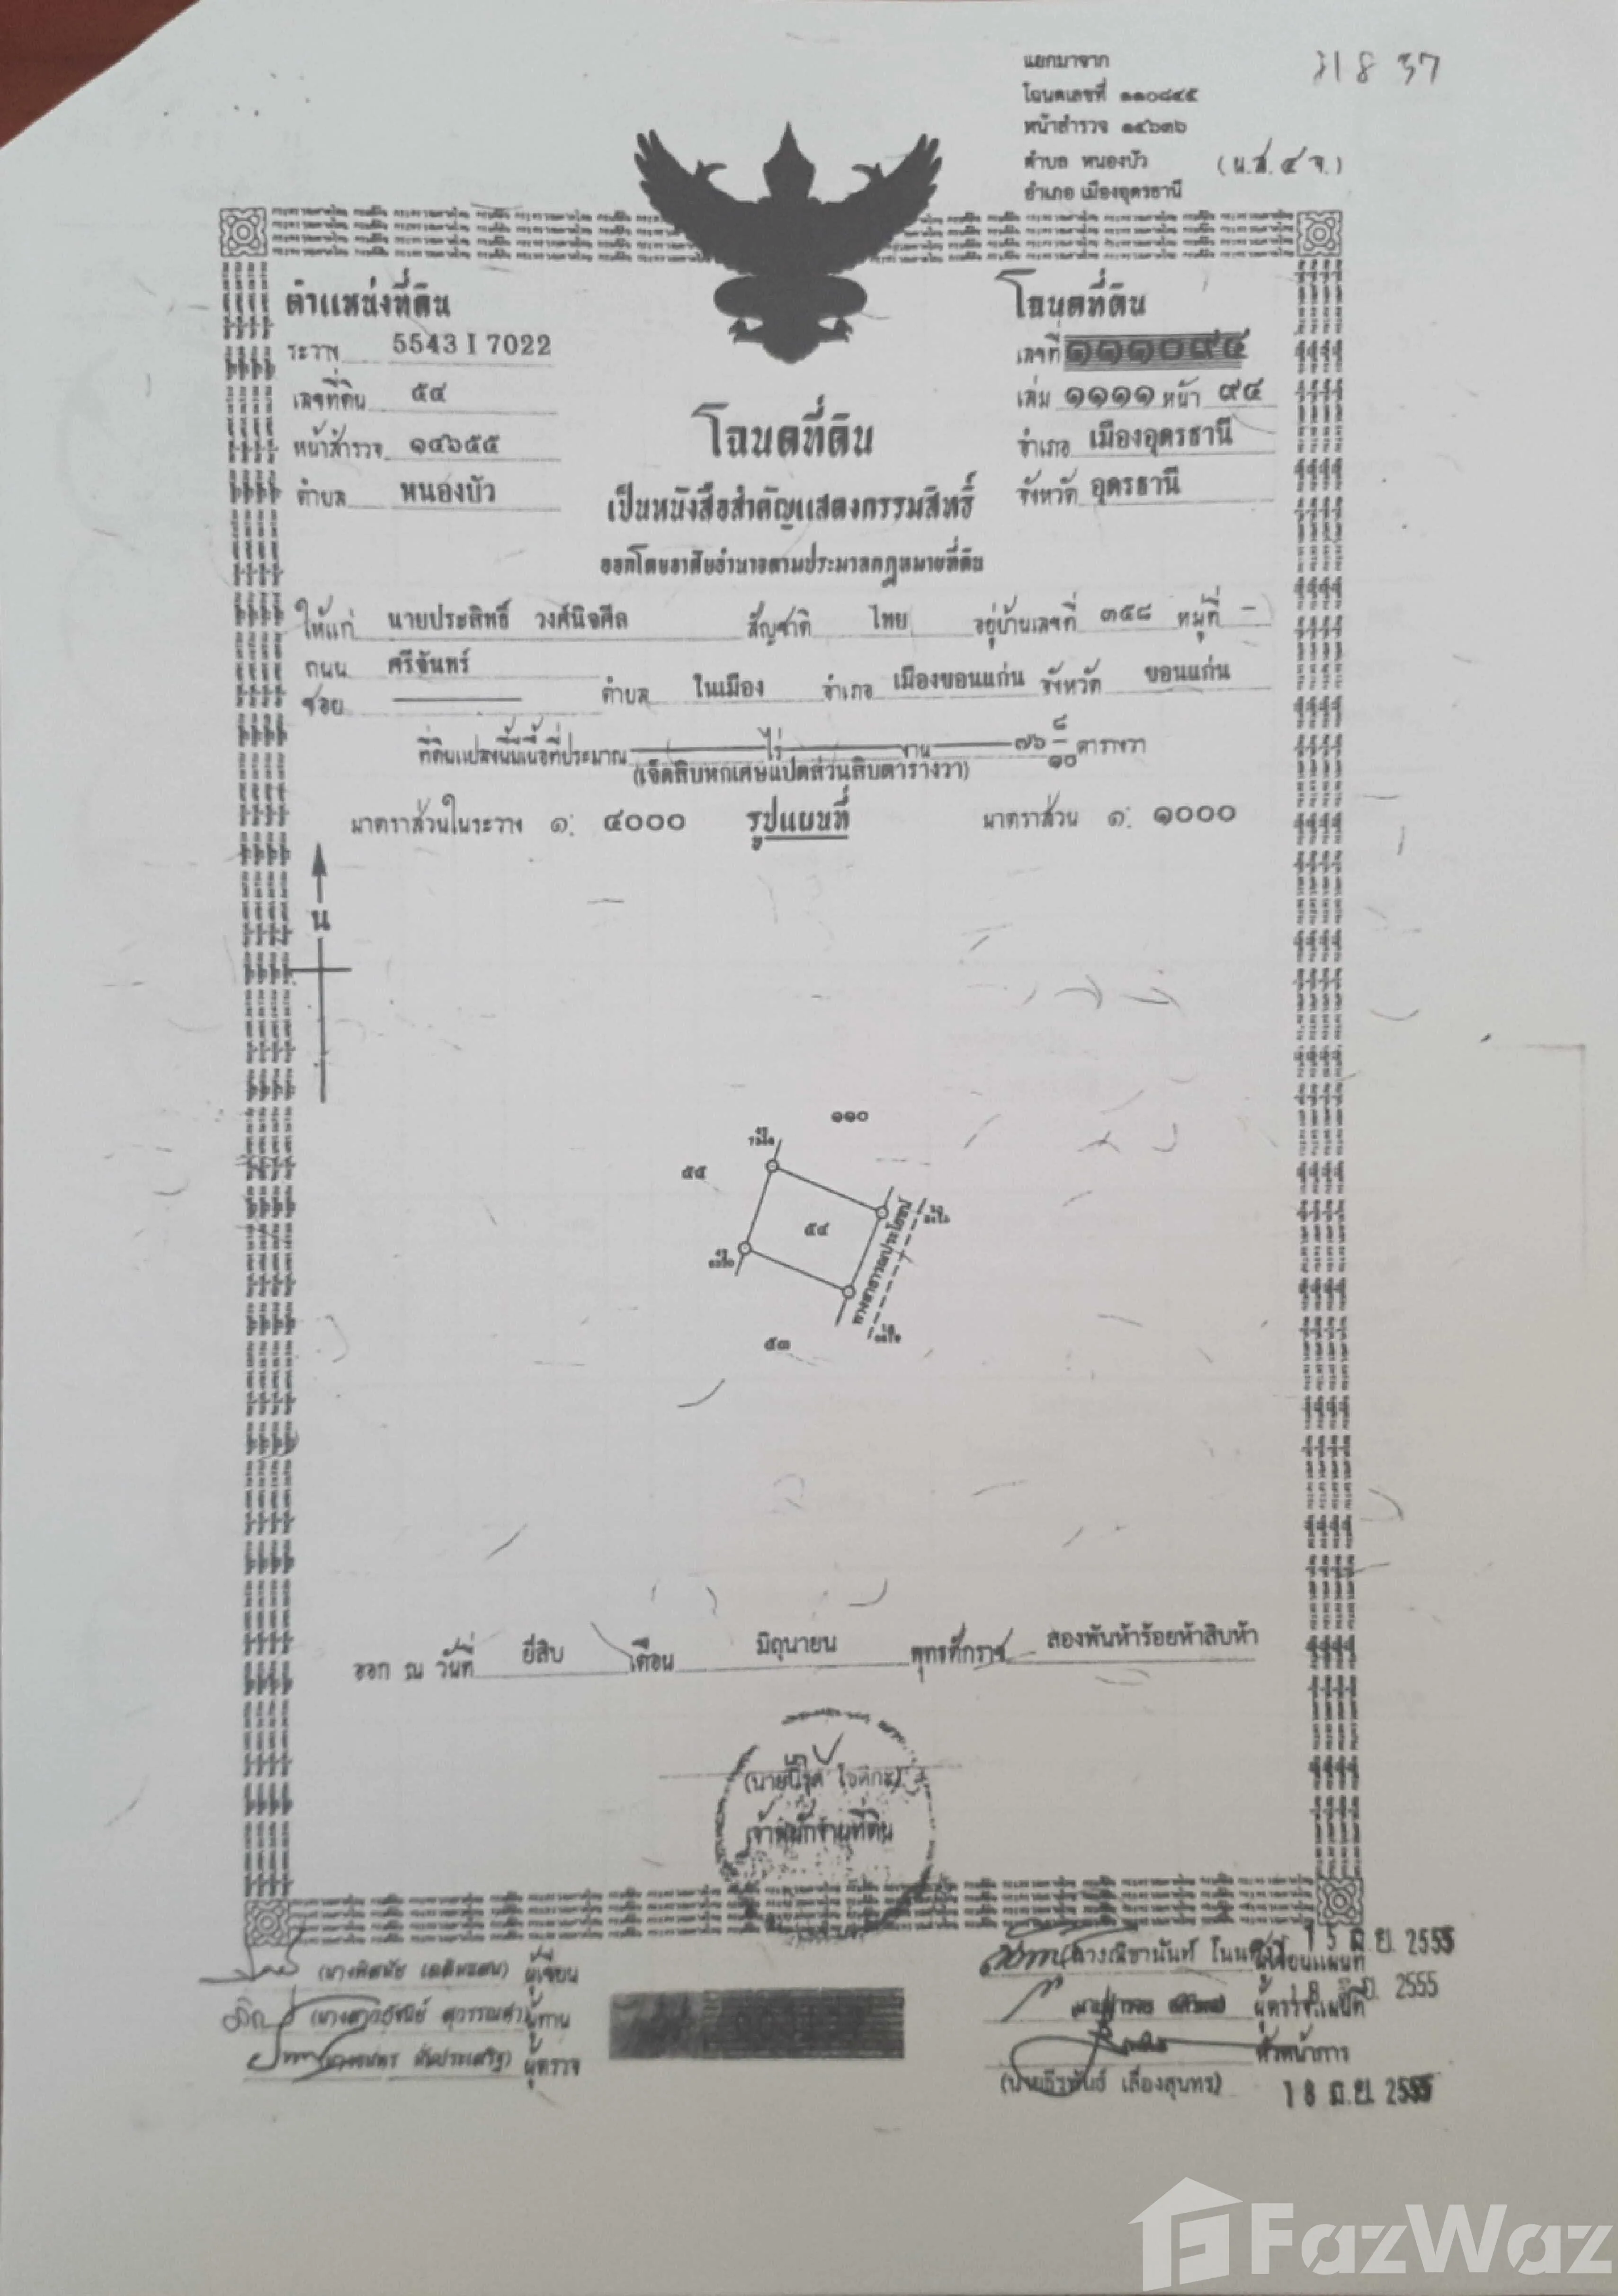 แยกมาจาก
โฉนดเลขที่ ๑๑๐๘๔๕
หน้าสำรวจ ๑๔๖๓๖
ตำบล หนองบัว
(น.ส.๔ จ.)
อำเภอ เมืองอุดรธานี
ตำแหน่งที่ดิน
ระวาง 5543 I 7022
เลขที่ดิน ๕๔
หน้าสำรวจ ๑๔๖๕๕
ตำบล หนองบัว
โฉนดที่ดิน
เลขที่ ๑๑๑๐๙๔
เล่ม ๑๑๑๑ หน้า ๙๔
อำเภอ เมืองอุดรธานี
จังหวัด อุดรธานี
โฉนดที่ดิน
เป็นหนังสือสำคัญแสดงกรรมสิทธิ์
ออกโดยอาศัยอำนาจตามประมวลกฎหมายที่ดิน
ให้แก่ นายประสิทธิ์ วงศ์นิจศีล สัญชาติ ไทย อยู่บ้านเลขที่ ๓๕๘ หมู่ที่ -
ถนน ศรีจันทร์
ซอย ตำบล ในเมือง อำเภอ เมืองขอนแก่น จังหวัด ขอนแก่น
ที่ดินแปลงนี้มีเนื้อที่ประมาณ ไร่ งาน ๗๖ ๘/๑๐ ตารางวา
(เจ็ดสิบหกเศษแปดส่วนสิบตารางวา)
มาตราส่วนในระวาง ๑: ๔๐๐๐ รูปแผนที่ มาตราส่วน ๑: ๑๐๐๐
น
๑๑๐
๕๕
๕๔
ทางสาธารณประโยชน์
๕๓
ออก ณ วันที่ ยี่สิบ เดือน มิถุนายน พุทธศักราช สองพันห้าร้อยห้าสิบห้า
เจ้าพนักงานที่ดิน
ผู้เขียน
ผู้ทาน
ผู้ตรวจ
15 มิ.ย. 2555
ผู้เขียนแผนที่
ผู้ตรวจแผนที่
2555
หัวหน้าการ
(นายธีรพันธ์ เลื่องสุนทร)
18 มิ.ย. 2555
FazWaz